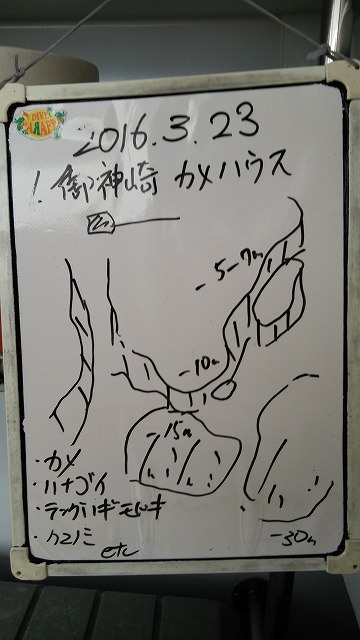 DIVE!
2016.3.23
! 御神崎 カメハウス
- 5-7m
- 10m
- 15m
・カメ
・ハナゴイ
・ラックハギモドキ
・クマノミ
etc
- 30m